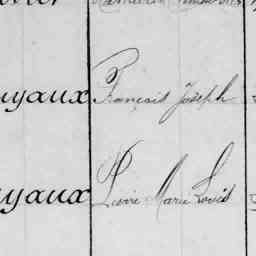 uyaux François Joseph
uyaux Pierre Marie Louis